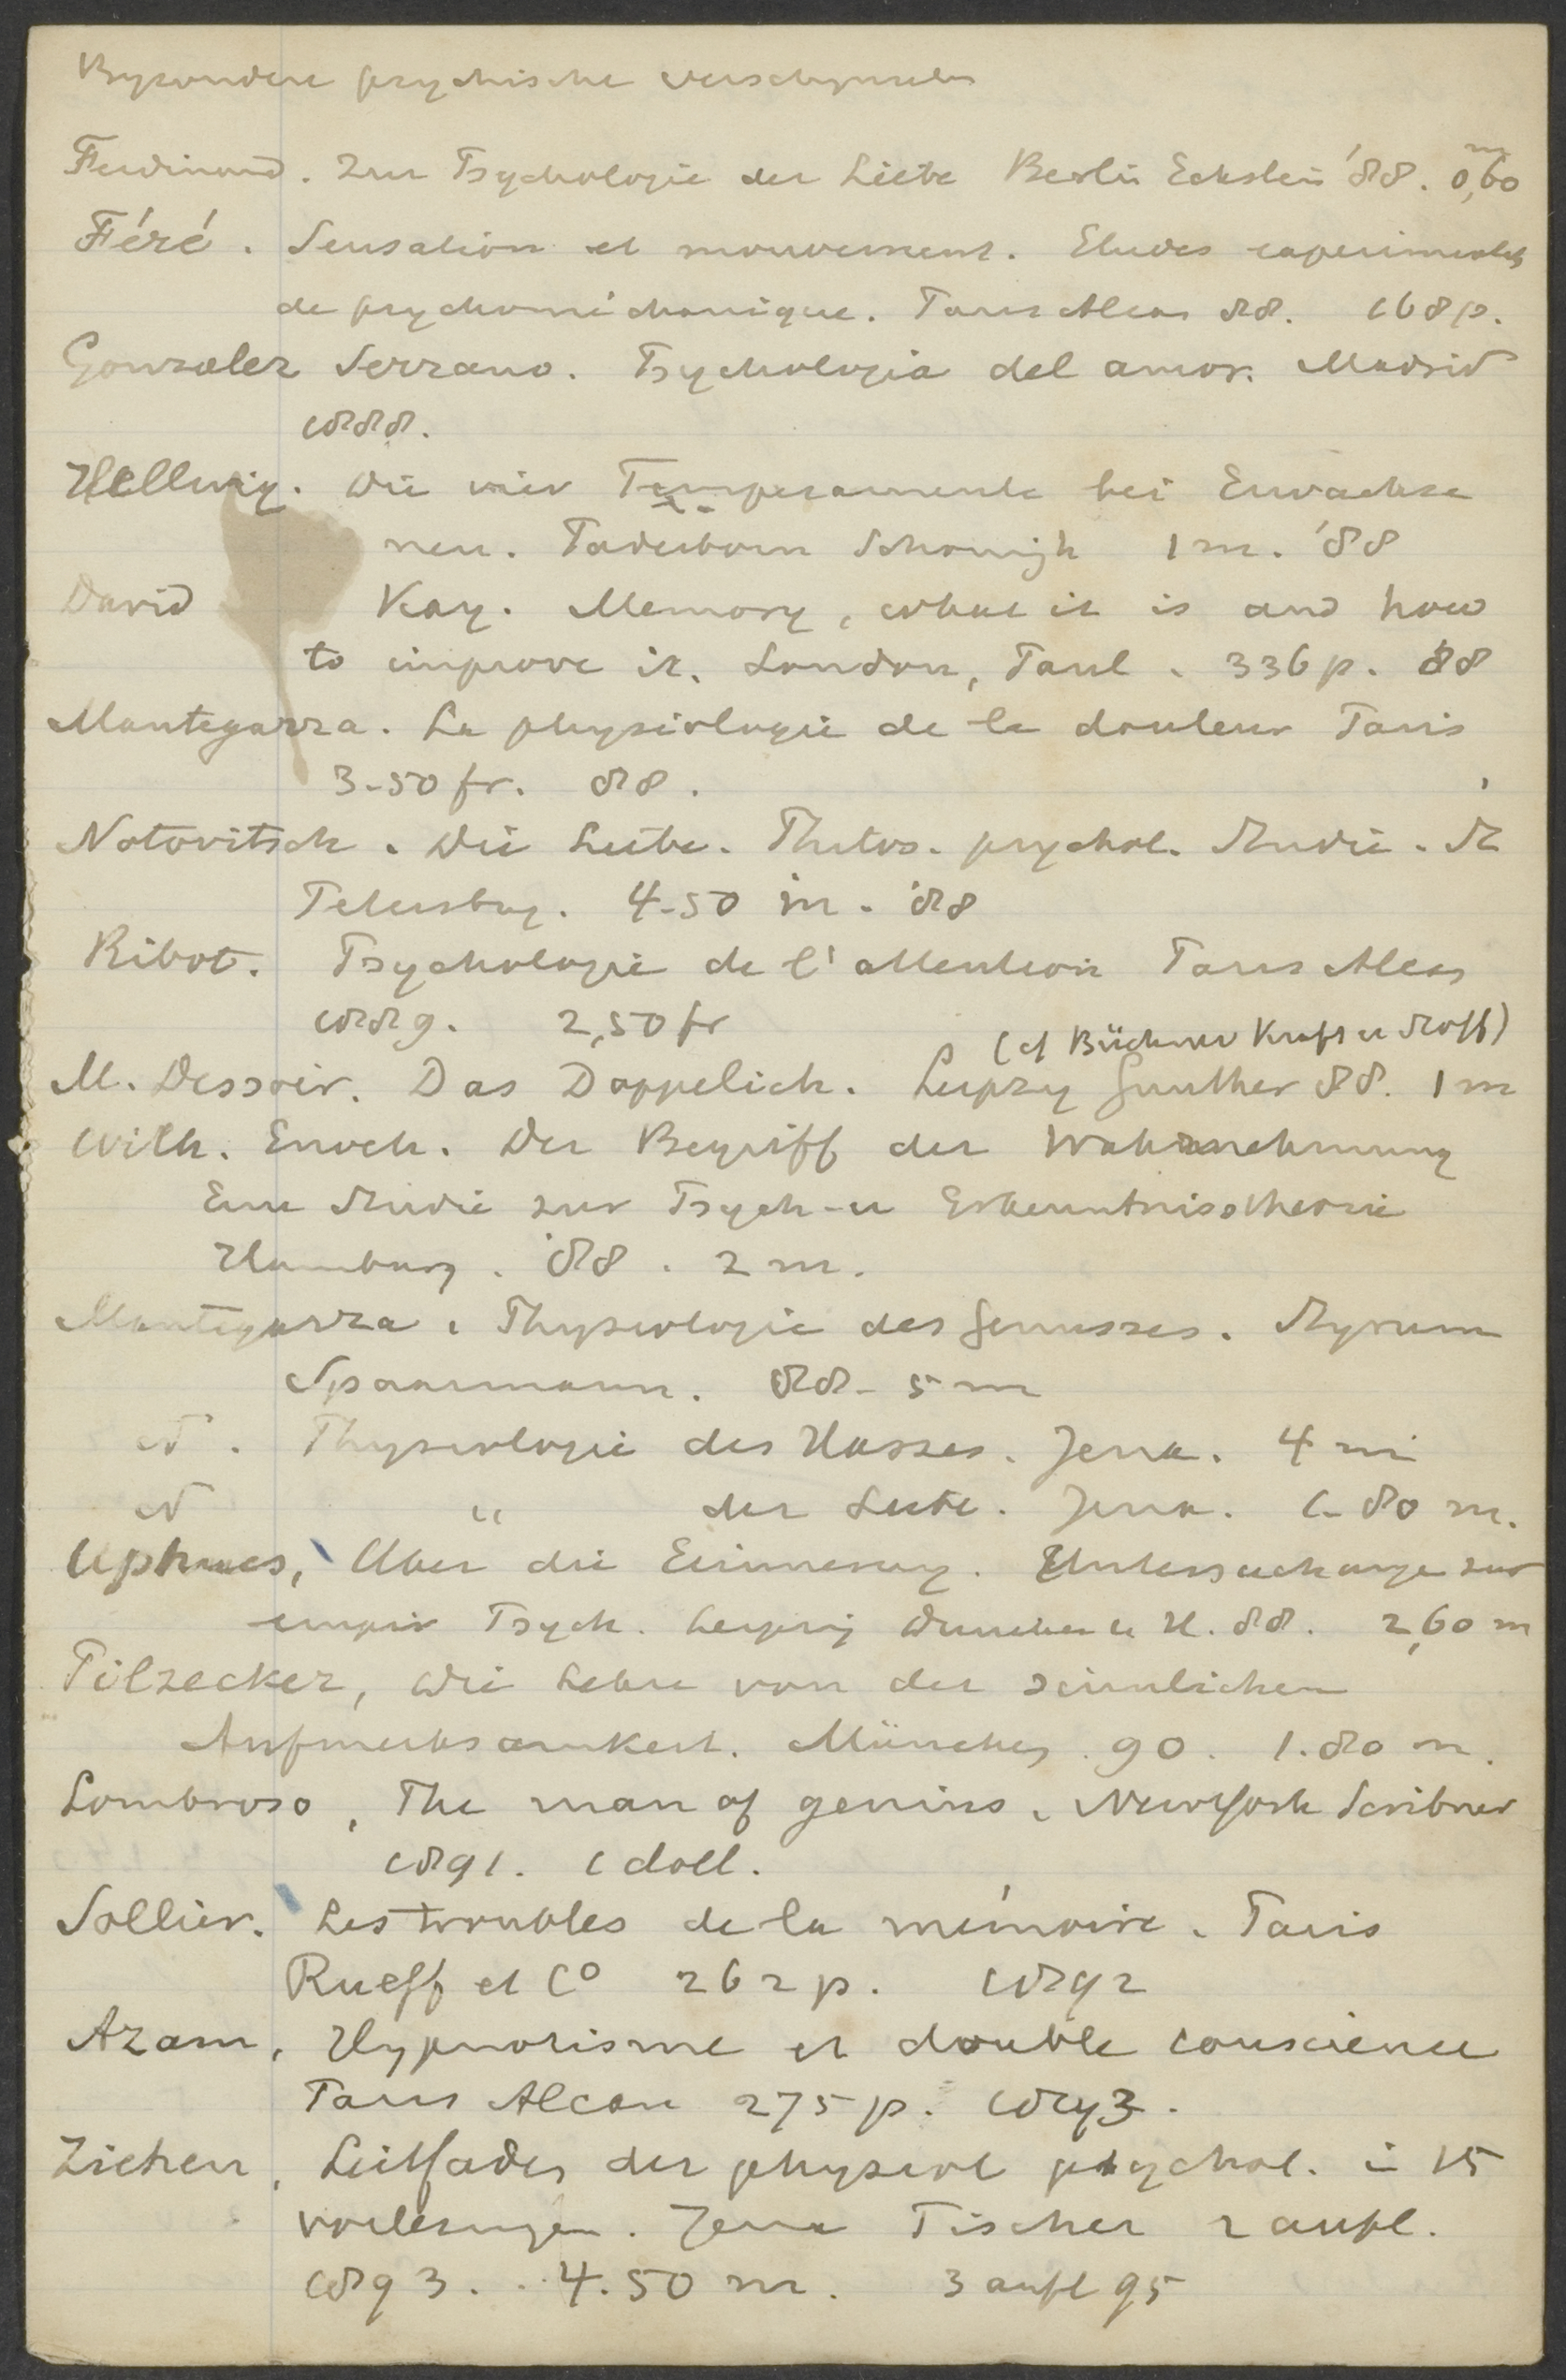 Byzondere psychische verschynselen
Ferdinand. Zur Psychologie der Liebe Berlin Eckstein '88. 0,60 m
Féré. Sensation et mouvement. Etudes experimentales
de psychoméchanique. Paris Alcan 88. 168 p.
Gonzalez Serrano. Psychologia del amor. Madrid
1888.
Hellwig. Die vier Temperamente bei Erwachse
nen. Paderborn Schöningh 1 m. '88
David Kay. Memory, what it is and how
to improve it. London, Paul. 336 p. 88
Mantegazza. La physiologie de la douleur Paris
3-50 fr. 88.
Notovitsch. Die Liebe. Philos. psychol. Studie. St
Petersburg. 4-50 m. '88
Ribot. Psychologie de l'attention Paris Alcan
1889. 2,50 fr
(cf Büchner Kraft u Stoff)
M. Dessoir. Das Doppelich. Leipzig Gunther 88. 1 m
Wilh. Enoch. Der Begriff der Wahrnehmung
Eine Studie zur Psych-u Erkenntnisstheorie
Hamburg. '88. 2 m.
Mantegazza. Physiologie des Genusses. Styrum
Spaarmann. 88- 5 m
id. Physiologie des Hasses. Jena. 4 m
id " der Liebe. Jena. 1-80 m.
Uphues, Uber die Erinnerung. Untersuchungen zur
empir Psych. Leipzig Duncker u H. 88. 2,60 m
Pilzecker, Die Lehre von der sinnlichen
Aufmerksamkeit. München. 90. 1.80 m.
Lombroso, The man of genius. New York Scribner
1891. 1 doll.
Sollier. Les troubles de la mémoire. Paris
Rueff et Co 262 p. 1892
Azam, Hypnotisme et double conscience
Paris Alcan 275 p. 1893.
Ziehen, Leitfaden der physiol psychol. in 15
vorlesungen. Jena Fischer 2 aufl.
1893. 4.50 m. 3 aufl 95